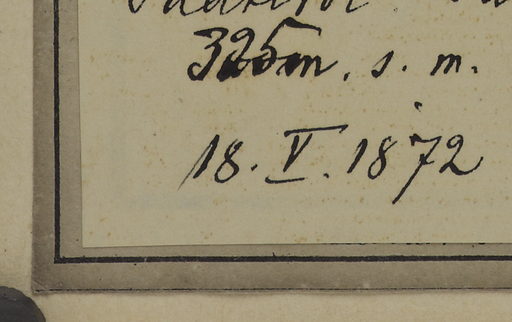 325m. s. m.
18. V. 1872